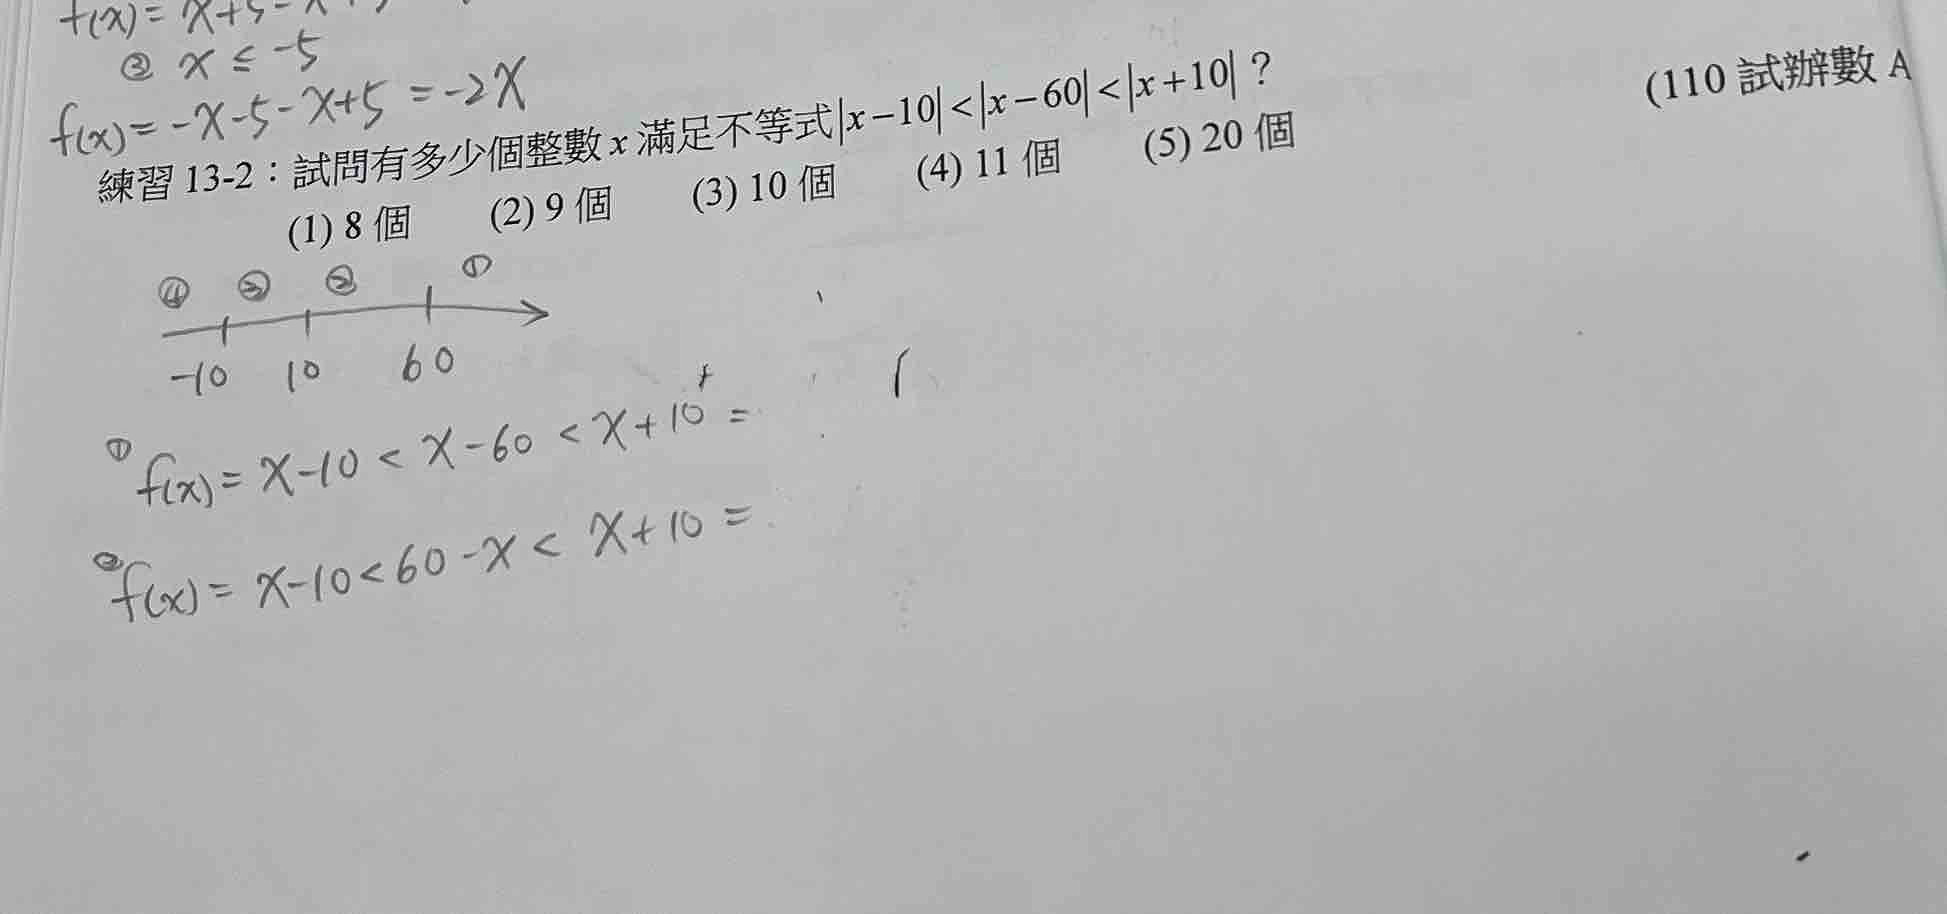 f(x) = x+5-x
③ x ≤ -5
f(x) = -x-5-x+5 = -2x
(110 試辦數 A
練習 13-2：試問有多少個整數 x 滿足不等式 |x-10|<|x-60|<|x+10|？
(1) 8 個 (2) 9 個 (3) 10 個 (4) 11 個 (5) 20 個
④ ③ ② ①
-10 10 60
① f(x) = x-10 < x-60 < x+10 =
② f(x) = x-10 < 60-x < x+10 =